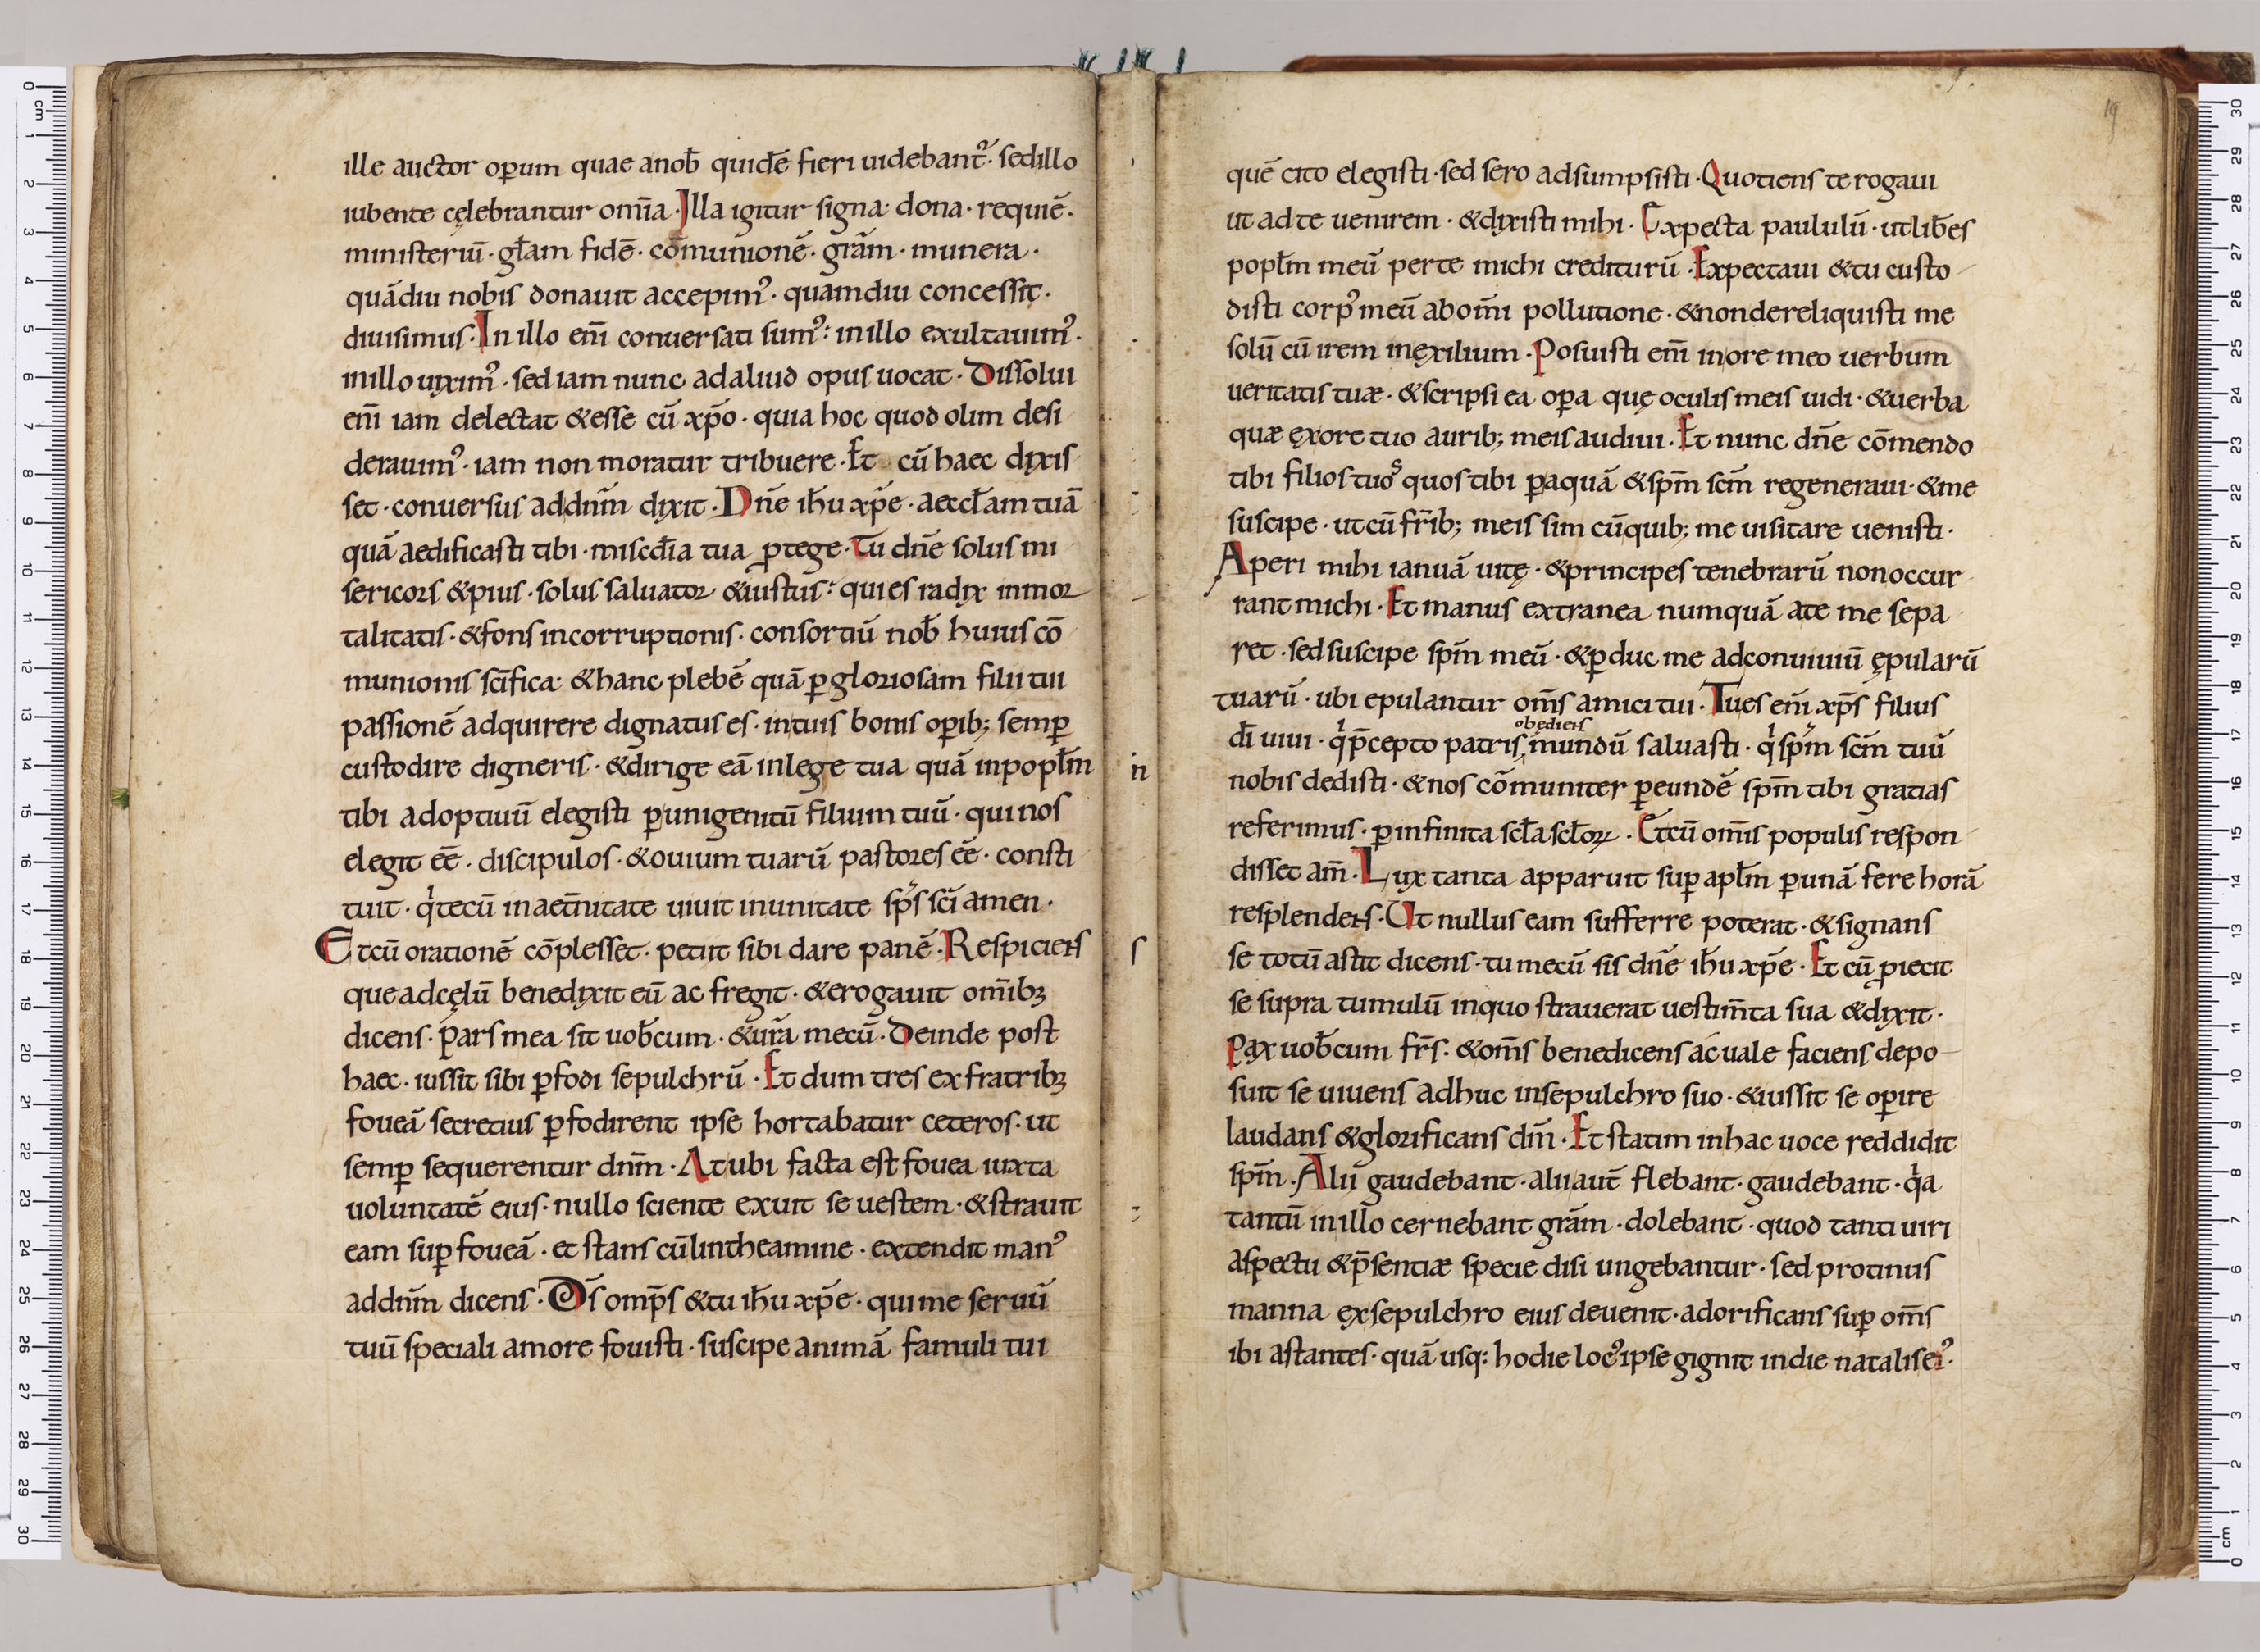 ille auctor oꝑum quae anob̄ quidē fieri uidebant᷑. sedillo
iubente cęlebrantur om̄ia. Illa igitur signa. dona. requiē.
ministeriū. gl̄am fidē. cōmunionē. gr̄am. munera.
quādiu nobis donauit accepimꝰ. quamdiu concessit.
diuisimus. In illo em̄ conuersati sumꝰ: inillo exultauimꝰ.
inillo uiximꝰ. sed iam nunc ad aliud opus uocat. Dissolui
em̄ iam delectat &esse cū xp̄o. quia hoc quod olim desi
derauimꝰ. iam non moratur tribuere. Et cū haec dixis
set. conuersus addn̄m dixit. Dn̄e ih̄u xp̄e. aeccl̄am tuā
quā aedificasti tibi. miscd̄ia tua ꝓtege. Tu dn̄e solus mi
sericors &pius. solus saluator &iustus: qui es radix inmor
talitatis. &fons incorruptionis. consortiū nob̄ huius cō
munionis sc̄ifica. &hanc plebē quā ꝑgloriosam filii tui
passionē adquirere dignatus es. intuis bonis oꝑib; semꝑ
custodire digneris. &dirige eā inlege tua quā inpopl̄m
tibi adoptiuū elegisti ꝑunigenitū filium tuū. qui nos
elegit eē. discipulos. &ouium tuarū pastores eē. consti
tuit. qͥtecū inaet̄nitate uiuit inunitate sp̄s sc̄i amen.
Etcū orationē cōplesset. petiit sibi dare panē. Respiciens
que adcęlū benedixit eū ac fregit. &erogauit om̄ibꝫ
dicens. Pars mea sit uob̄cum. &ur̄a mecū. Deinde post
haec. iussit sibi ꝑfodi sepulchrū. Et dum tres ex fratribꝫ
foueā secretius ꝑfodirent ipse hortabatur ceteros. ut
semꝑ sequerentur dn̄m. At ubi facta est fouea iuxta
uoluntatē eius. nullo sciente exuit se uestem. &strauit
eam suꝑ foueā. et stans cūlintheamine. extendit manꝰ
addn̄m dicens. Ds̄ omp̄s &tu ih̄u xp̄e. qui me seruū
tuū speciali amore fouisti. suscipe animā famuli tui
n
s
19
quē cito elegisti. sed sero adsumpsisti. Quotiens te rogaui
ut ad te uenirem. &dixisti mihi. Expecta paululū. utlib̄es
popl̄m meū perte michi crediturū. Expectaui &tu custo
disti corpꝰ meū abom̄i pollutione. &nondereliquisti me
solū cū irem inęxilium. Posuisti em̄ inore meo uerbum
ueritatis tuæ. &scripsi ea oꝑa quę oculis meis uidi. &uerba
quæ ęxore tuo aurib; meis audiui. Et nunc dn̄e cōmendo
tibi filios tuos quos tibi ꝑaquā &sp̄m sc̄m regeneraui. &me
suscipe. utcū fr̄ib; meis sim cūquib; me uisitare uenisti.
Aperi mihi ianuā uitę. &principes tenebrarū nonoccur
rant michi. Et manus extranea numquā ate me sepa
ret. sed suscipe sp̄m meū. &ꝑduc me adconuiuiū ępularū
tuarū. ubi epulantur om̄s amici tui. Tu es em̄ xp̄s filius
obediens
dī uiui. qͥp̄cepto patris, mundū saluasti. qͥ sp̄m sc̄m tuū
nobis dedisti. &nos cōmuniter ꝑeundē sp̄m tibi gratias
referimus. ꝑinfinita scl̄a scl̄oꝝ. Etcū om̄is populis respon
disset am̄. Lux tanta apparuit suꝑ apl̄m ꝑunā fere horā
resplendens. Ut nullus eam sufferre poterat. &signans
se totū astit dicens. tu mecū sis dn̄e ih̄u xp̄e. Et cū ꝓiecit
se supra tumulū inquo strauerat uestim̄ta sua &dixit.
Pax uob̄cum fr̄s. &om̄s benedicens ac uale faciens depo
suit se uiuens adhuc insepulchro suo. &iussit se oꝑire
laudans &glorificans dm̄. Et statim inhac uoce reddidit
sp̄m. Alii gaudebant. alii aut̄ flebant. gaudebant. qͥa
tantū inillo cernebant gr̄am. dolebant. quod tanti uiri
aspectu &p̄sentiæ specie disi ungebantur. sed protinus
manna ęxsepulchro eius deuenit. adorificans suꝑ om̄s
ibi astantes. quā usq: hodie locꝰ ipse gignit indie natalis eiꝰ.